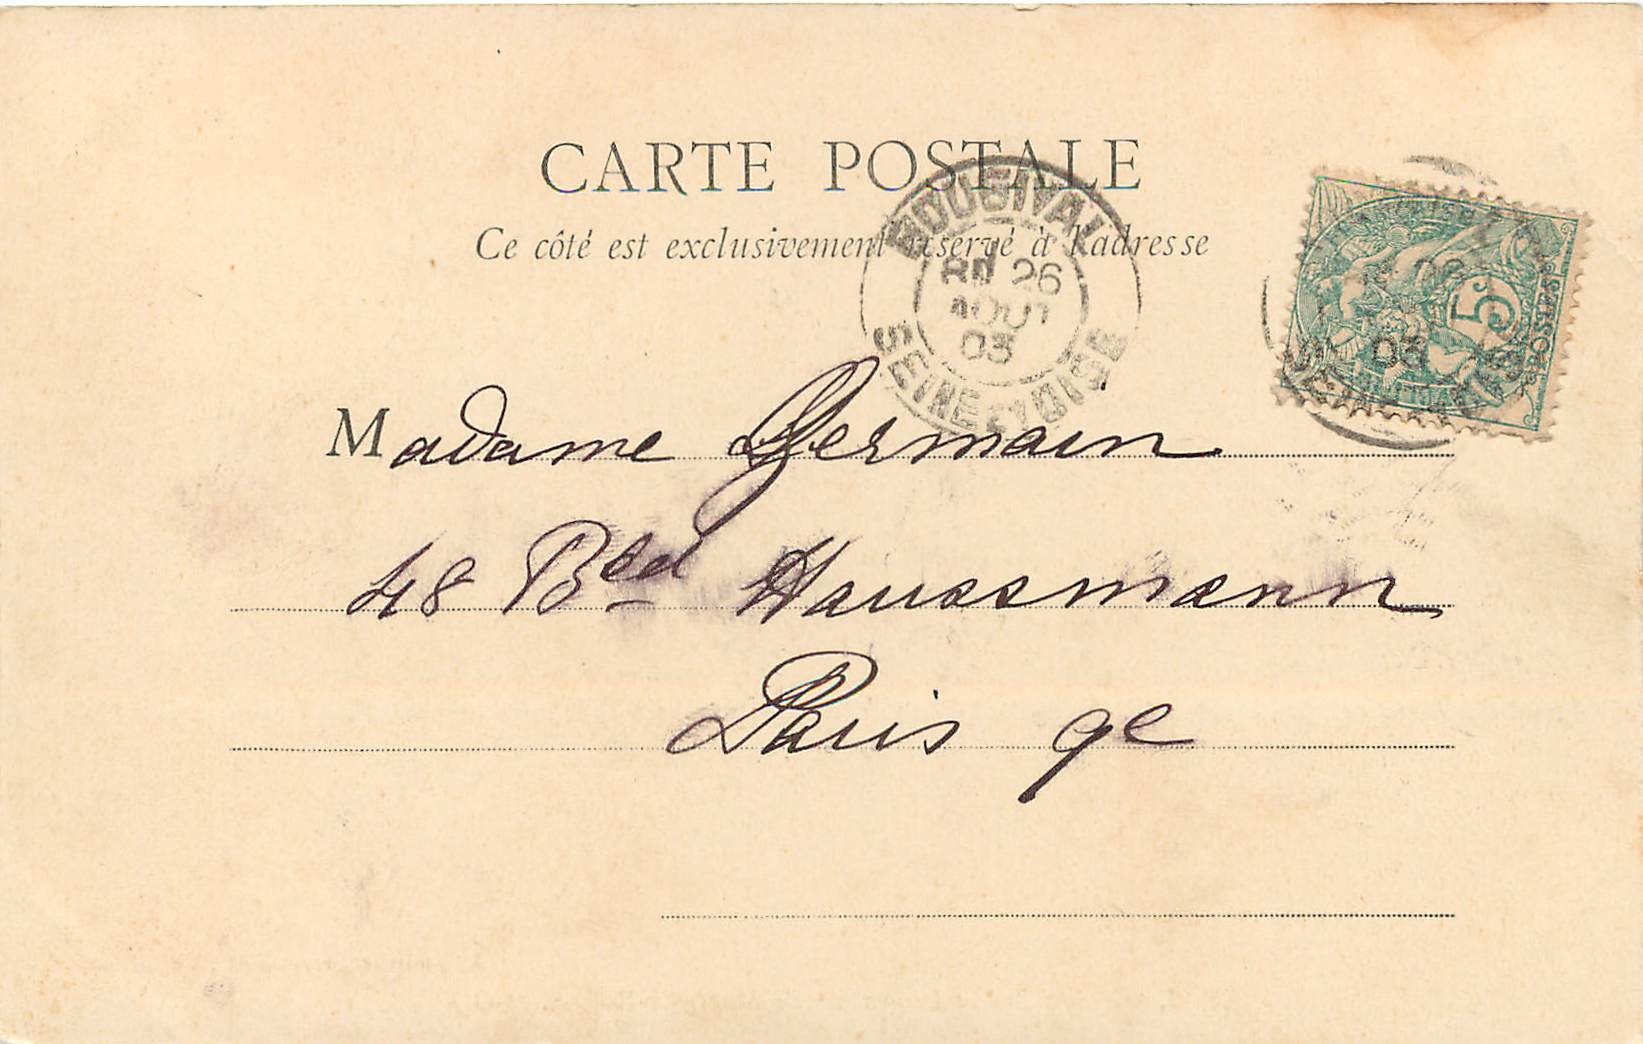 CARTE POSTALE
Ce côté est exclusivement réservé à l'adresse
BOUGIVAL
26
AOUT
03
SEINE ET OISE
5
POSTES
03
Madame Germain
48 Bed Haussmann
Paris 9e